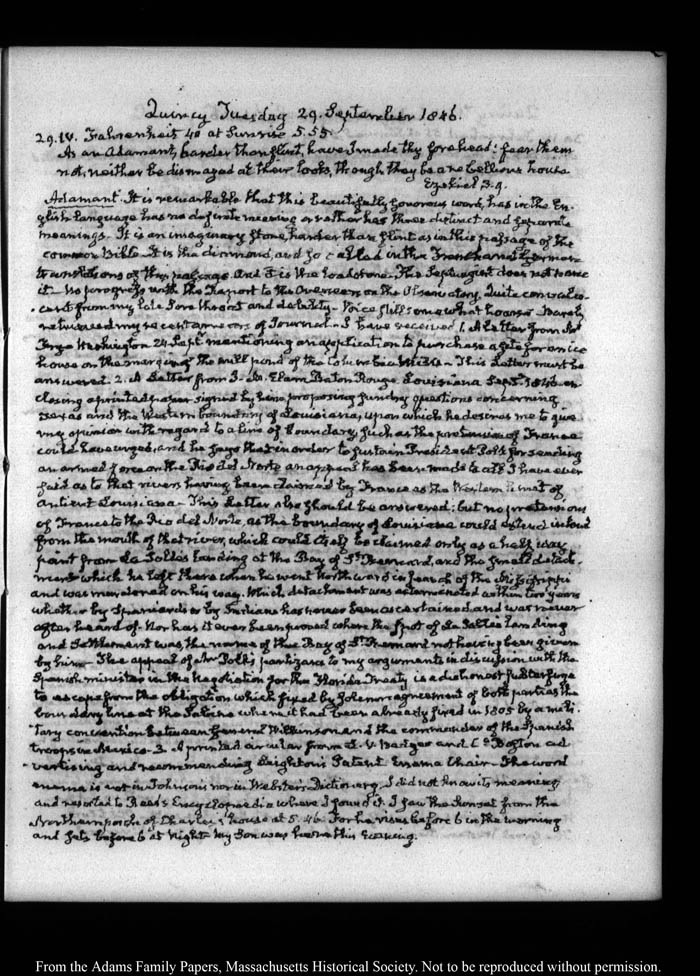 Quincy Tuesday 29. September 1846.
29. IV. Fahrenheit 40 at Sunrise 5.55.
As an Adamant, harder than flint, have I made thy forehead: fear them
not, neither be dismayed at their looks, though they be a rebellious house
Ezekiel 3.9.
Adamant. It is remarkable that this beautifully sonorous word, has in the En-
glish language has no definite meaning or rather has three distinct and separate
meanings. It is an imaginary stone, harder than flint as in this passage of the
common Bible. It is the diamond, and so called in the French and German
translations of this passage. And it is the loadstone. The Septuagint does not name
it. No progress with the Report to the Overseers on the Observatory. Quite convales-
cent from my late Sore throat and debility. Voice still somewhat hoarse. Barely
retrieved my recent arrears of Journal. I have received 1. A letter from
Frye Washington 24 Sept. mentioning an application to purchase a site for an ice
house on the margin of the mill pond of the Columbian Mills. This Letter must be
answered. 2. A Letter from J. Elam Baton Rouge Louisiana Sept. 1846 en-
closing a printed paper signed by him proposing sundry questions concerning
Texas and the Western boundary of Louisiana, upon which he desires me to give
my opinion with regard to a line of boundary, such as the pretensions of France
could have urged, and he says that in order to sustain President Polk for sending
an armed force on the Rio del Norte an appeal has been made to all I have ever
said as to that river having been claimed by France as the Western limit of
antient Louisiana. This Letter also should be answered: but no pretensions
of France to the Rio del Norte, as the boundary of Louisiana could extend inland
from the mouth of that river, which could itself be claimed only as a half way
point from La Salle's landing at the Bay of St. Bernard, and the small detach-
ment which he left there when he went Northward in search of the Mississippi
and was murdered on his way. Which detachment was exterminated within two years
whether by Spaniards or by Indians has never been ascertained and was never
after heard of. Nor has it ever been proved where the spot of La Salle's Landing
and Settlement was, the name of the Bay of St. Bernard not having been given
by him. The appeal of Mr Polk's partizans to my arguments in discussion with the
Spanish minister in the Negotiation for the Florida Treaty is a dishonest subterfuge
to escape from the obligation which fixed by solemn agreement of both parties the
boundary line at the Sabine where it had been already fixed in 1805 by a mili-
tary convention between General Wilkinson and the commander of the Spanish
troops in Mexico. 3. A printed circular from L. V. Badger and Co. Boston ad-
vertising and recommending Leighton's Patent Enema Chair. The word
enema is not in Johnson's nor in Webster's Dictionary. I did not know its meaning
and resorted to Rees's Encyclopaedia where I found it. I saw the Sunset from the
Northern porch of Charles's house at 5.46. For he rises before 6 in the morning
and sets before 6 at Night. My Son was here this Evening.
From the Adams Family Papers, Massachusetts Historical Society. Not to be reproduced without permission.